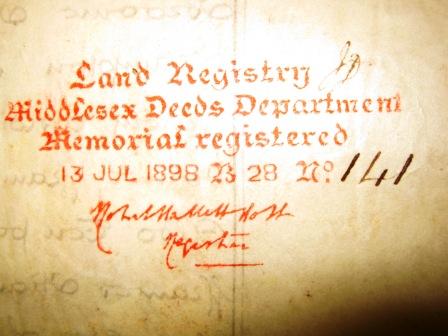 Land Registry
Middlesex Deeds Department
Memorial registered
13 JUL 1898 B 28 No. 141
Robert Hallett Holt
Registrar